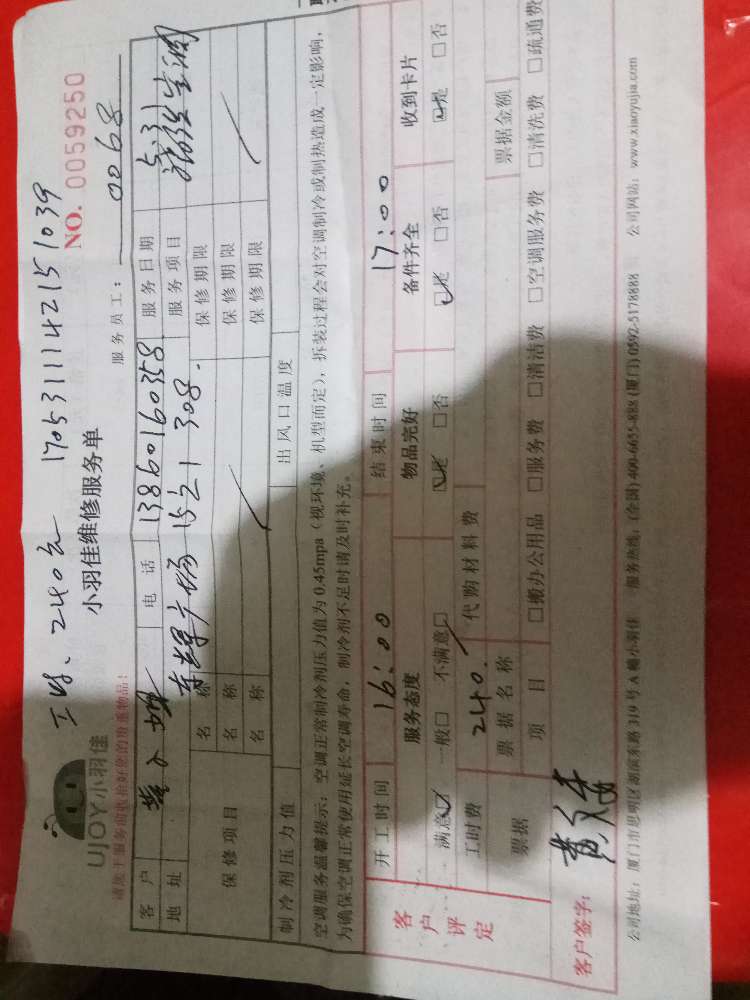 240元 1705311142151039
UJOY小羽佳
小羽佳维修服务单
NO. 0059250
请您于服务前收拾好您的贵重物品!
服务员工: 0068
客户 黄小姐 电话 13860160358 服务日期 5.31
地址 广场15楼 308. 服务项目 空调
保修项目
名称 保修期限
名称 保修期限
名称 保修期限
制冷剂压力值 出风口温度
空调服务温馨提示:空调正常制冷剂压力值为 0.45mpa(视环境、机型而定),拆装过程会对空调制冷或制热造成一定影响,
为确保空调正常使用延长空调寿命,制冷剂不足时请及时补充。
客户评定
开工时间 16:00 结束时间 17:00
服务态度 物品完好 备件齐全 收到卡片
满意☑ 一般□ 不满意□ ☑是 □否 ☑是 □否 ☑是 □否
工时费 240. 代购材料费
票据 票据名称 票据金额
项目 □搬办公用品 □服务费 □清洁费 □空调服务费 □清洗费 □疏通费
客户签字:
公司地址:厦门市思明区湖滨东路 319 号 A 幢小羽佳 服务热线:(全国) 400-6655-888 (厦门) 0592-5178888 公司网站:www.xiaoyujia.com